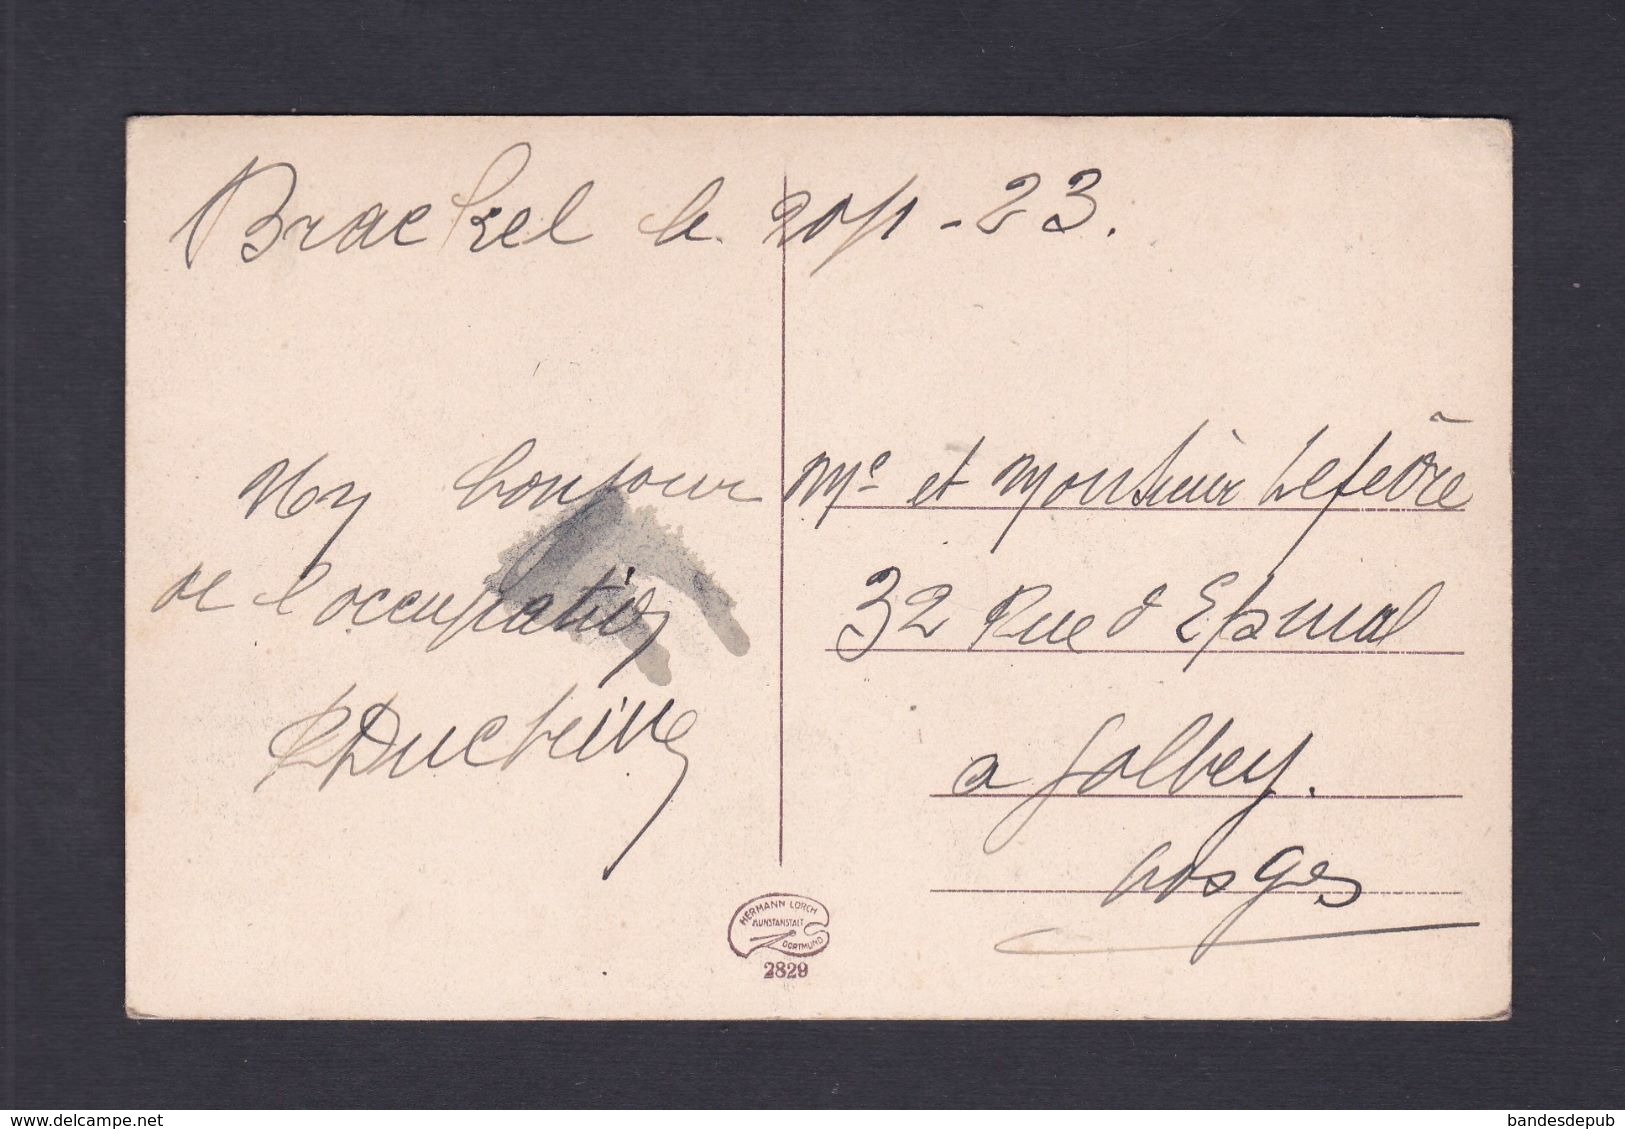 Brackel le 20/1 - 23.
Un bonjour
de l'occupation
Me et Monsieur Lefèvre
32 Rue d'Epinal
a Golbey.
Vosges
HERMANN LORCH
KUNSTANSTALT
DORTMUND
2829
delcampe.net
bandesdepub